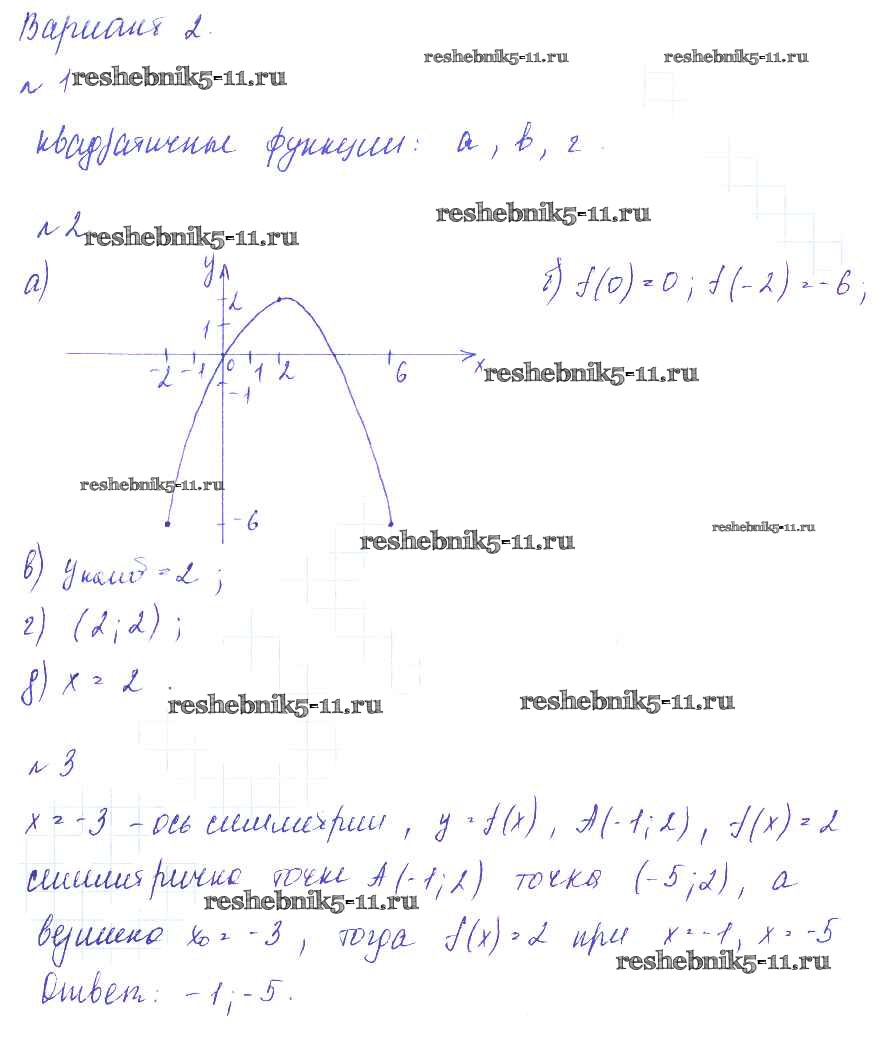 Вариант 2.
reshebnik5-11.ru reshebnik5-11.ru
№ 1 reshebnik5-11.ru
квадратичные функции: а, в, г.
reshebnik5-11.ru
№ 2 reshebnik5-11.ru
а) y б) f(0) = 0; f(-2) = -6;
2
1
-2 -1 0 1 2 6 x reshebnik5-11.ru
-1
reshebnik5-11.ru
-6 reshebnik5-11.ru
reshebnik5-11.ru
в) yнаиб = 2;
г) (2; 2);
д) x = 2.
reshebnik5-11.ru reshebnik5-11.ru
№ 3
x = -3 - ось симметрии, y = f(x), A(-1; 2), f(x) = 2
симметрично точке A(-1; 2) точка (-5; 2), а
reshebnik5-11.ru
вершина x₀ = -3, тогда f(x) = 2 при x = -1, x = -5
reshebnik5-11.ru
Ответ: -1; -5.